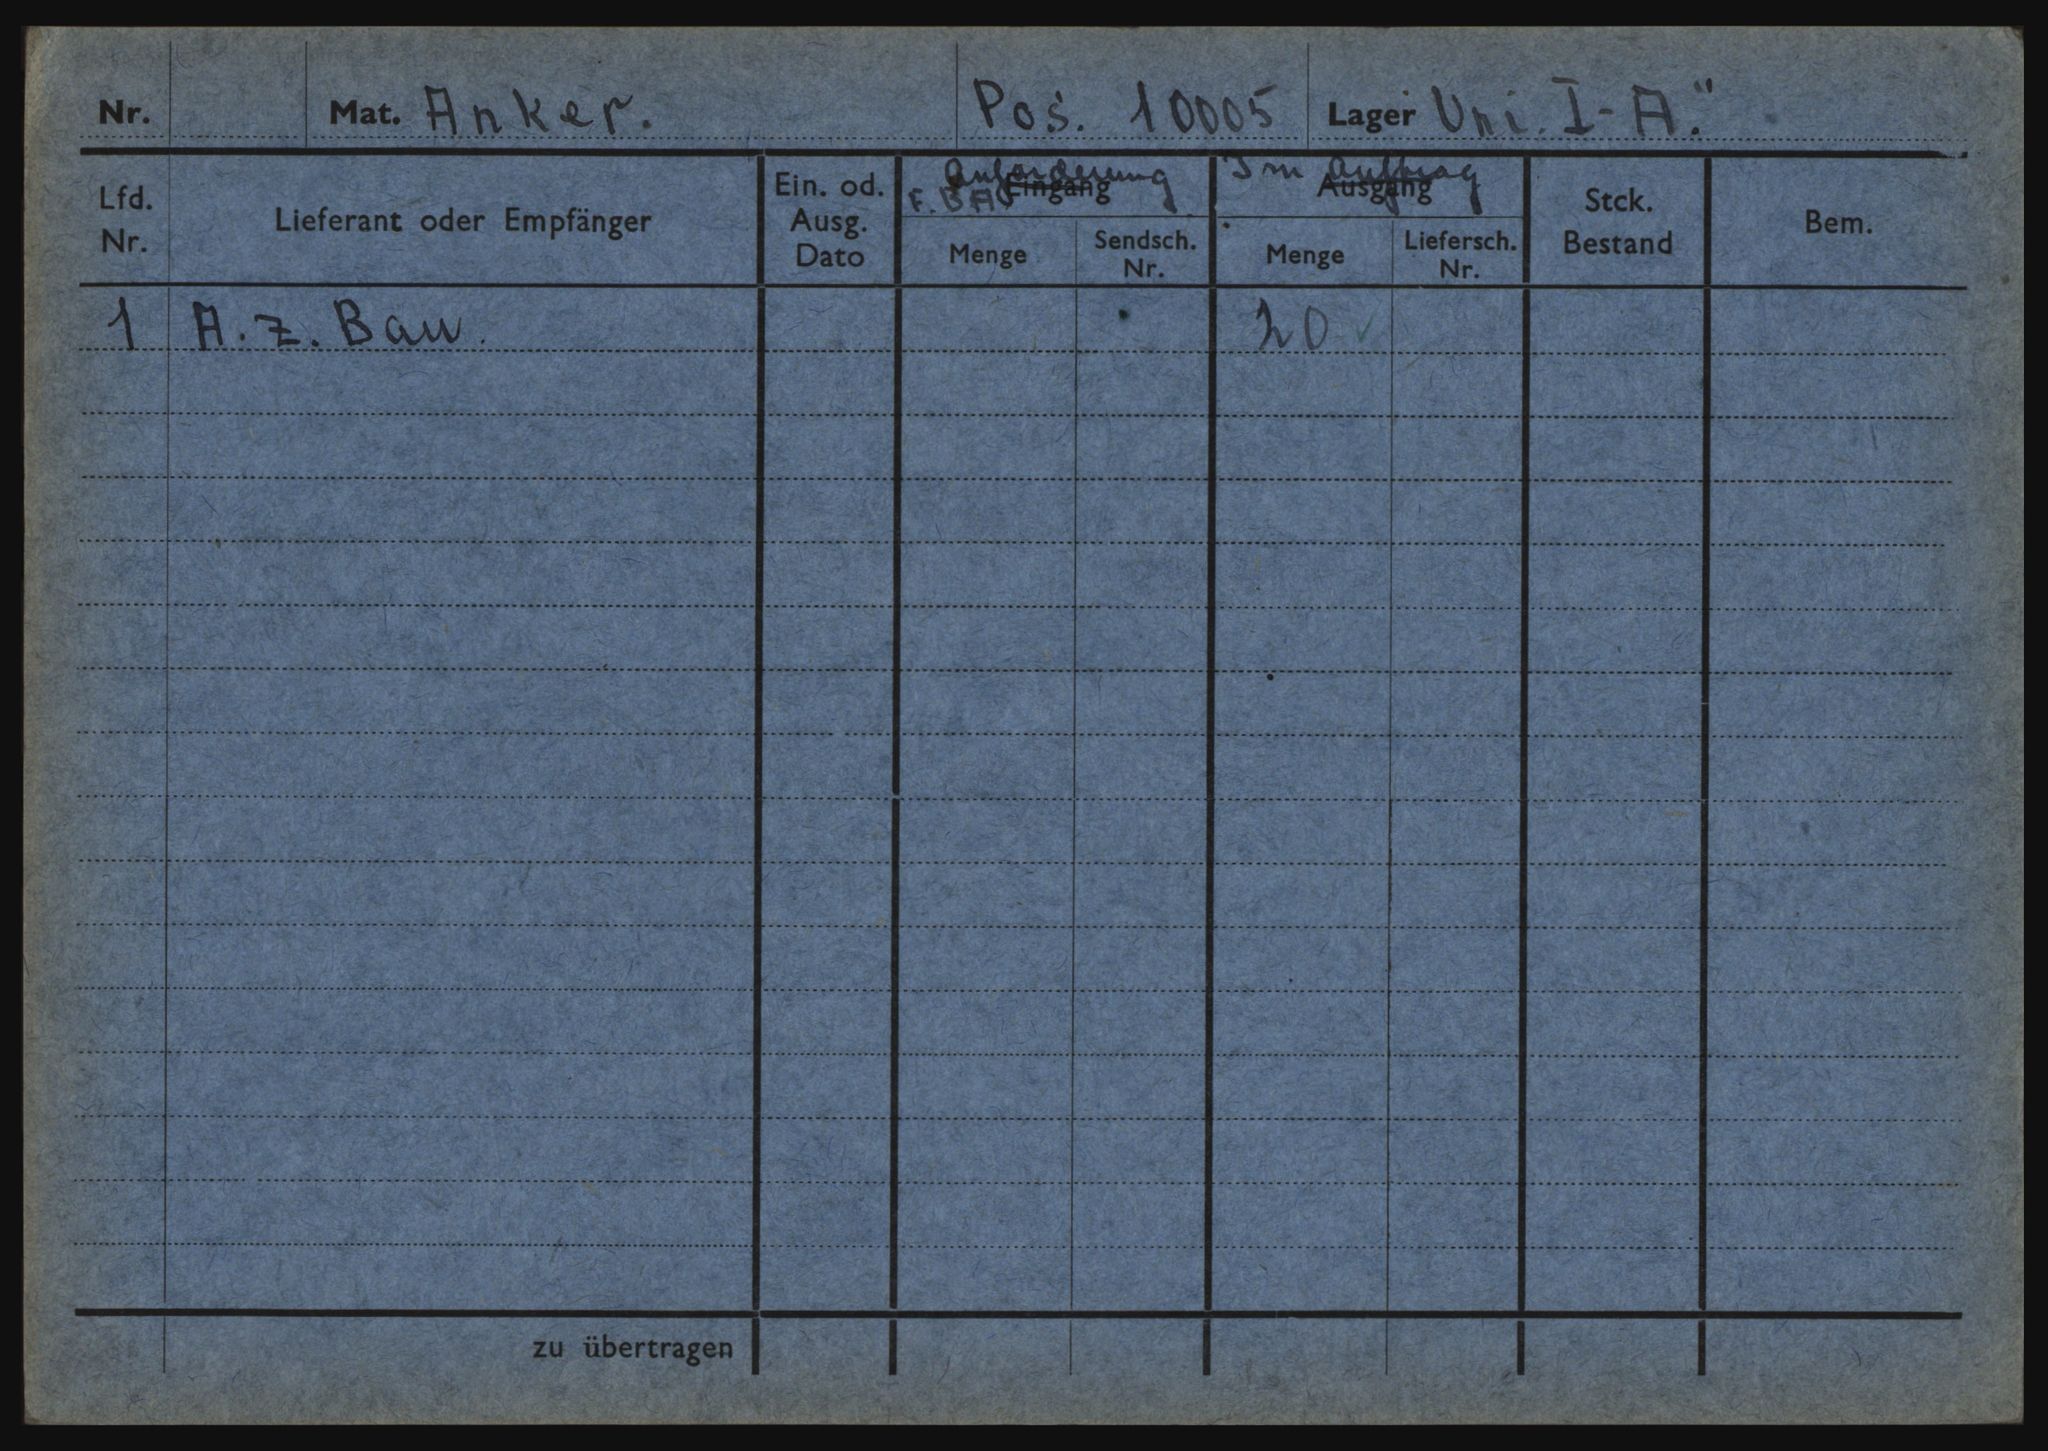 Nr. Mat. Anker. Pos. 10005 Lager Uni. I-A."
Lfd. Nr. Lieferant oder Empfänger Ein. od. Ausg. Dato Anforderung F. BA Eingang Im Auftrag Ausgang Stck. Bestand Bem.
Menge Sendsch. Nr. Menge Liefersch. Nr.
1 A. z. Bau. 20 ✓
zu übertragen